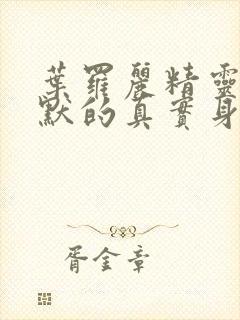 葉羅麗精靈
默的真實身
胥金章